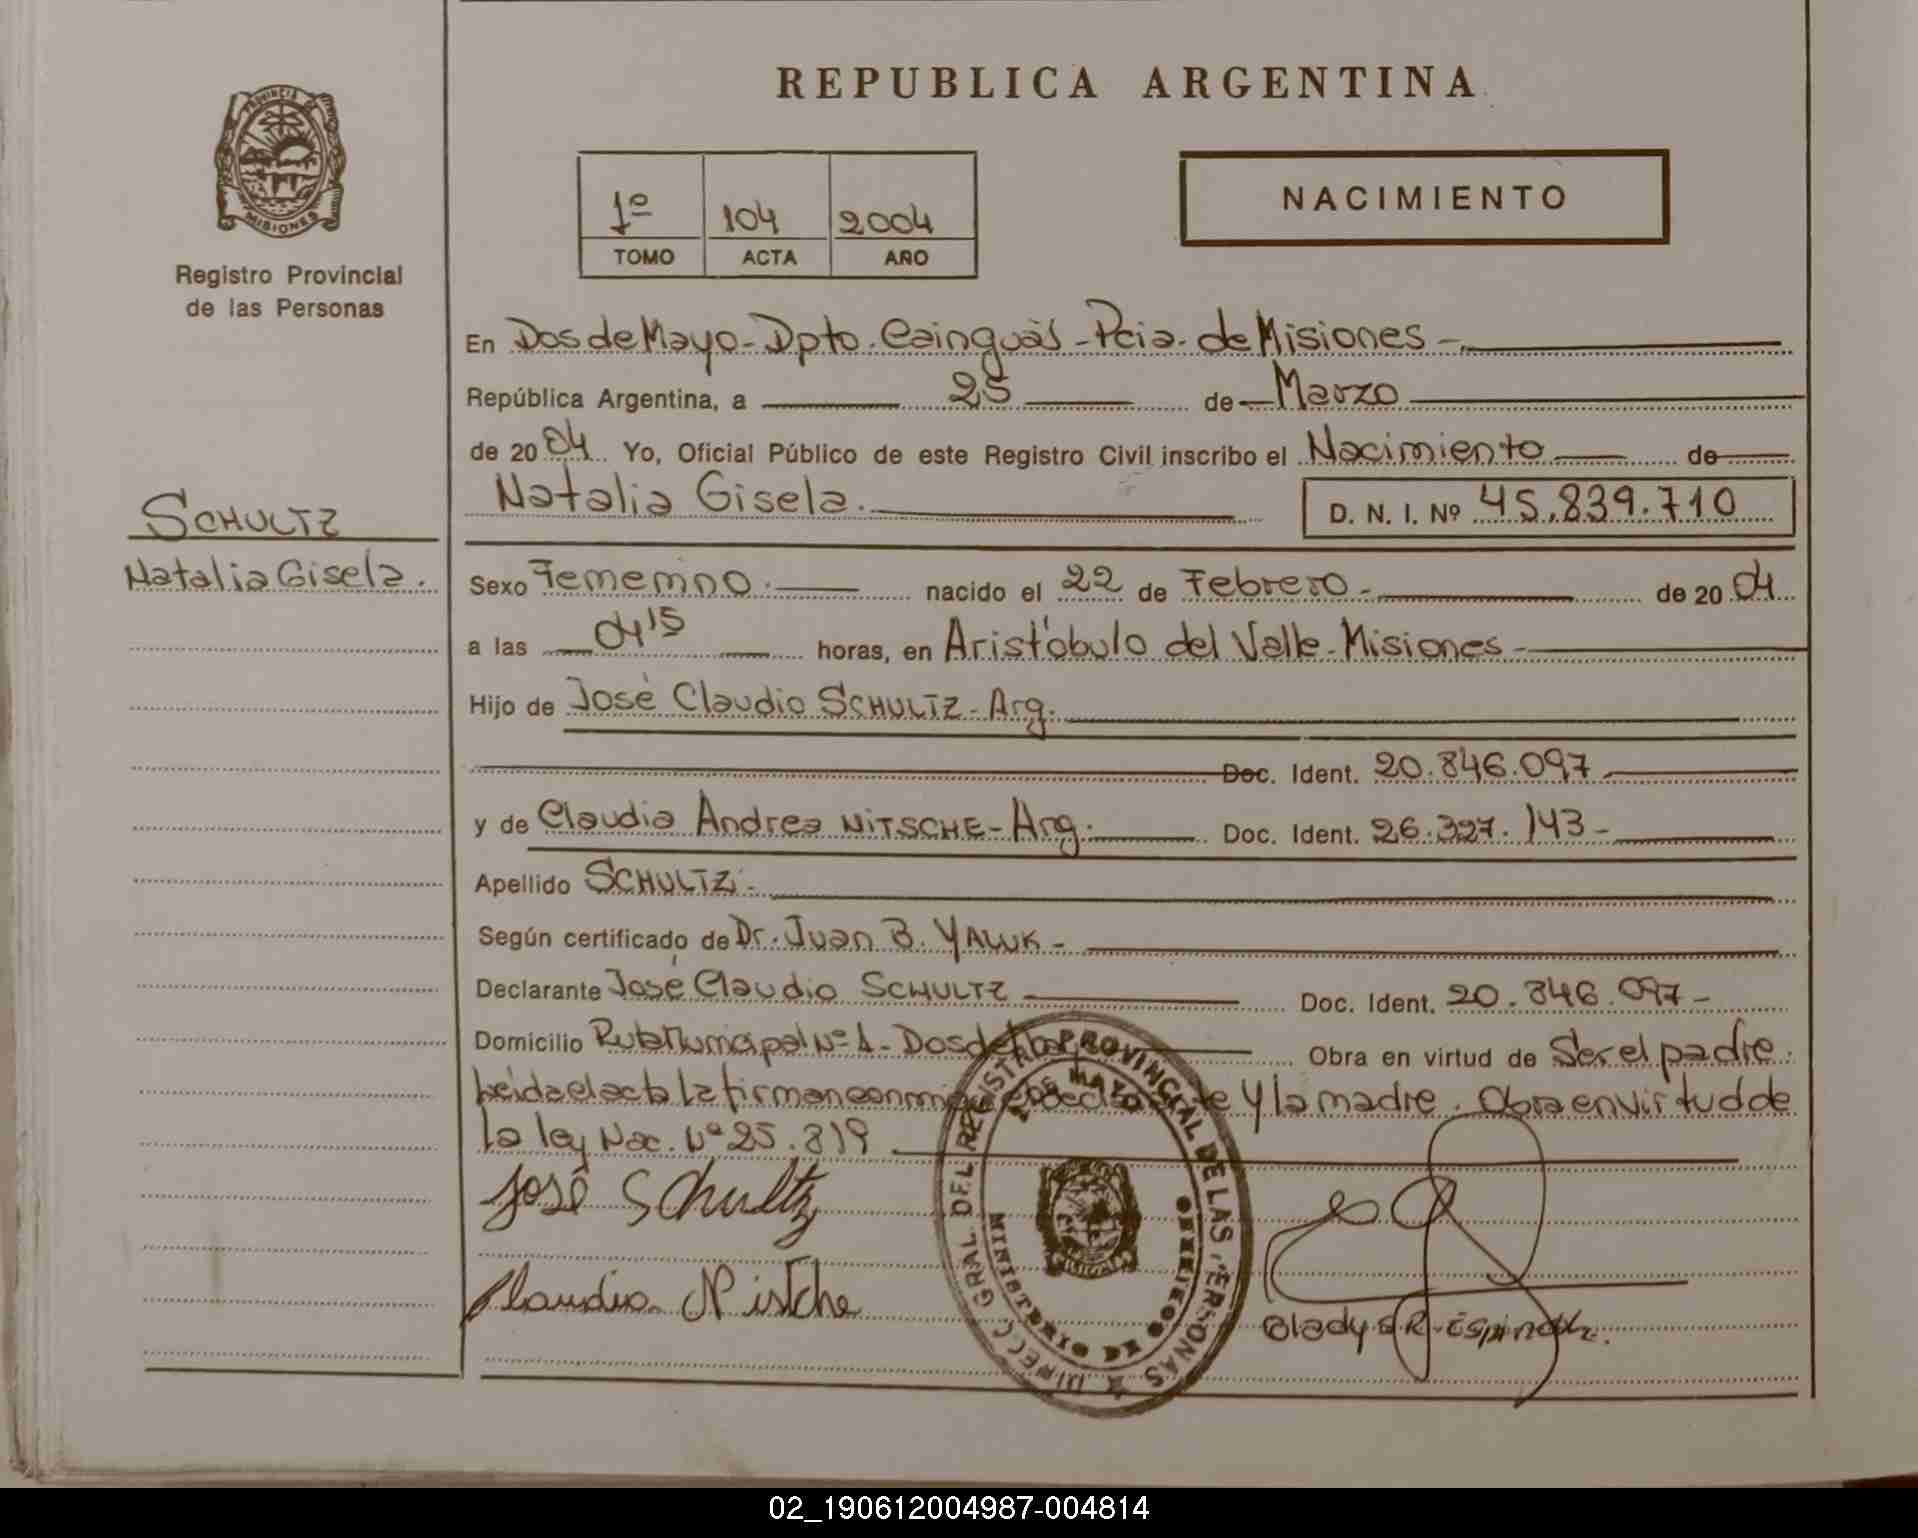 REPUBLICA ARGENTINA
PROVINCIA DE
MISIONES
Registro Provincial
de las Personas
1º 104 2004
TOMO ACTA AÑO
NACIMIENTO
En Dos de Mayo - Dpto. Cainguás - Pcia. de Misiones -
República Argentina, a 25 de Marzo
de 2004. Yo, Oficial Público de este Registro Civil inscribo el Nacimiento de
Natalia Gisela. D. N. I. Nº 45.839.710
SCHULTZ
Natalia Gisela.
Sexo Femenino. nacido el 22 de Febrero - de 2004
a las 04 15 horas, en Aristóbulo del Valle - Misiones -
Hijo de José Claudio SCHULTZ - Arg.
Doc. Ident. 20.846.097
y de Claudia Andrea NITSCHE - Arg. Doc. Ident. 26.327.143 -
Apellido SCHULTZ -
Según certificado de Dr. Juan B. YALUK -
Declarante José Claudio SCHULTZ Doc. Ident. 20.846.097 -
Domicilio Ruta Municipal Nº 1 - Dos de Mayo Obra en virtud de Ser el padre.
Leida el acta la firman conmigo el declarante y la madre. Obra en virtud de
la ley Nac. Nº 25.819
José Schultz
Claudia Nistche
Gladys R. Espindola.
DIRECC. GRAL. DEL REGISTRO PROVINCIAL DE LAS PERSONAS
DOS DE MAYO
MINISTERIO DE GOBIERNO
02_190612004987-004814